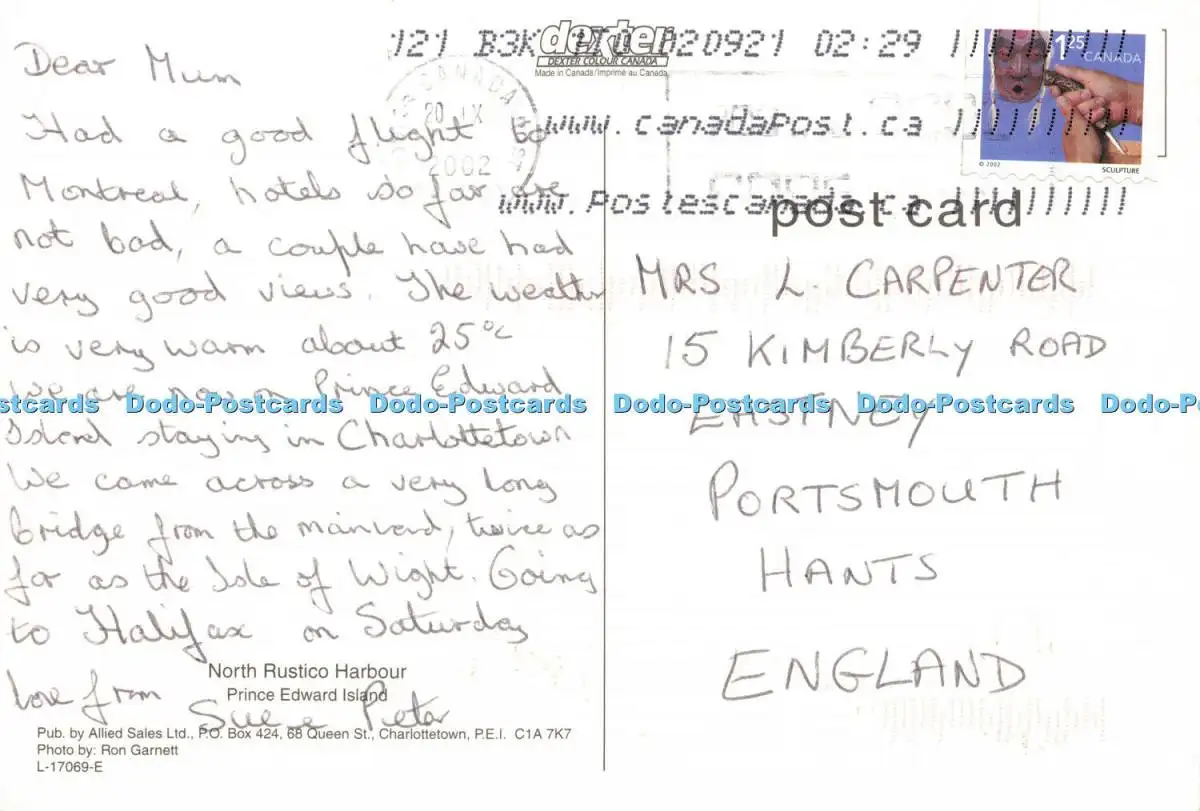 121 B3K 020921 02:29
dexter
DEXTER COLOUR CANADA
Made in Canada/Imprimé au Canada
CANADA
20 IX
2002
www.canadaPost.ca
www.Postescanada.ca
1 25
CANADA
© 2002
SCULPTURE
post card
Dear Mum
Had a good flight to
Montreal, hotels so far are
not bad, a couple have had
very good views. The weather
is very warm about 25°c
We are now on Prince Edward
Island staying in Charlottetown
We came across a very long
bridge from the mainland, twice as
far as the Isle of Wight. Going
to Halifax on Saturday
love from
Sue & Peter
MRS L. CARPENTER
15 KIMBERLY ROAD
EASTNEY
PORTSMOUTH
HANTS
ENGLAND
stcards Dodo-Postcards Dodo-Postcards Dodo-Postcards Dodo-Postcards Dodo-P
North Rustico Harbour
Prince Edward Island
Pub. by Allied Sales Ltd., P.O. Box 424, 68 Queen St., Charlottetown, P.E.I. C1A 7K7
Photo by: Ron Garnett
L-17069-E